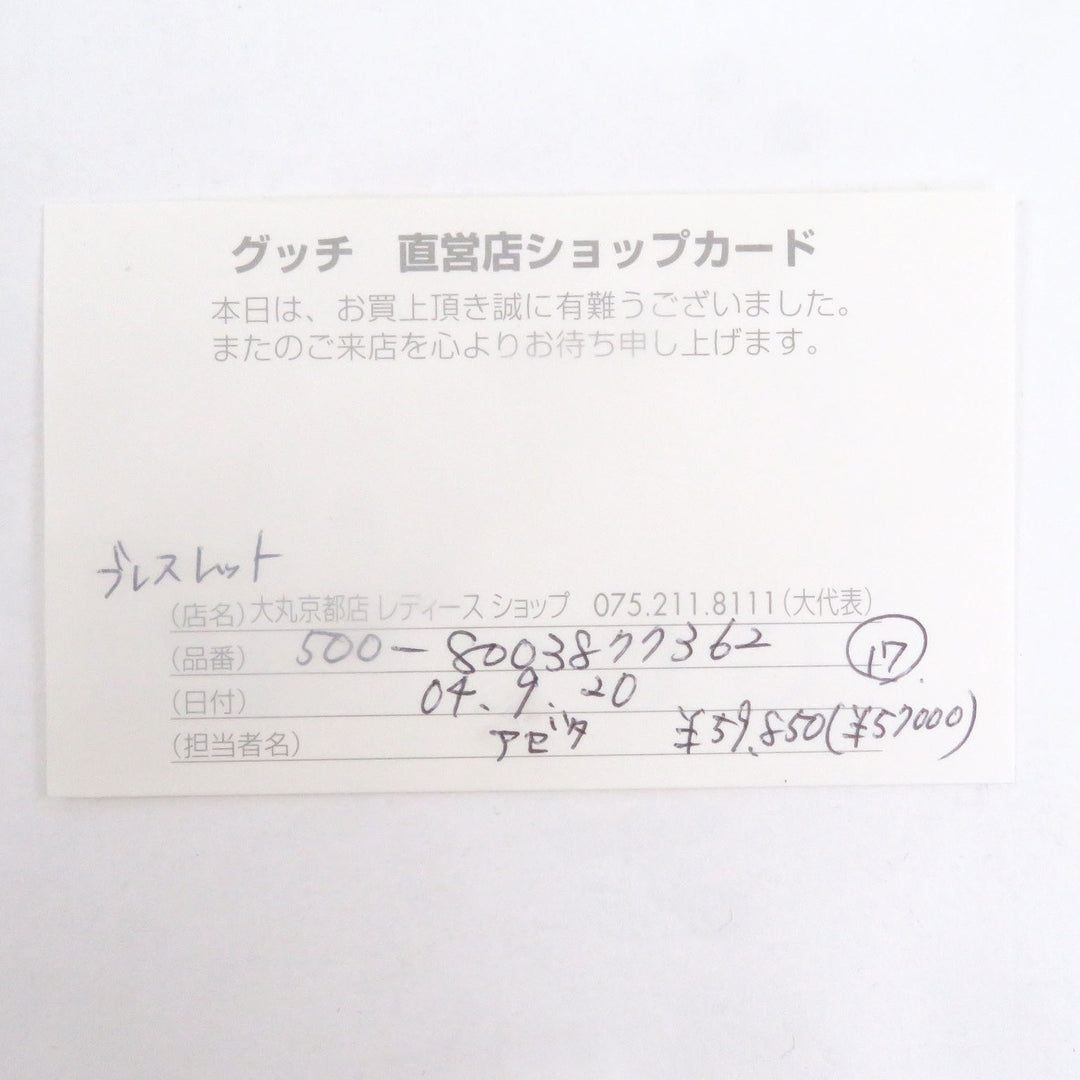 グッチ 直営店ショップカード
本日は、お買上頂き誠に有難うございました。
またのご来店を心よりお待ち申し上げます。
ブレスレット
(店名) 大丸京都店 レディース ショップ 075.211.8111(大代表)
(品番) 500-8003877362 17
(日付) 04.9.20
(担当者名) アゼガタ ¥59,850(¥57000)